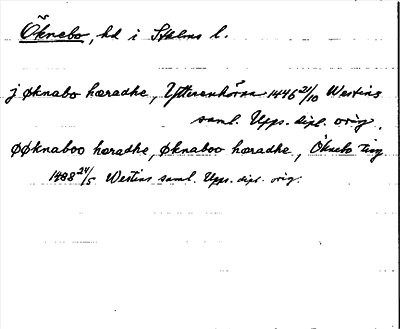 Öknebo, hd i Sthlms l.
j øknabo hæradhe, Ytterenhörna 1446 21/10 Westins
saml. Upps. dipl. orig.
øøknaboo hæradhe, øknaboo hæradhe, Öknebo ting
1488 24/5 Westins saml. Upps. dipl. orig.